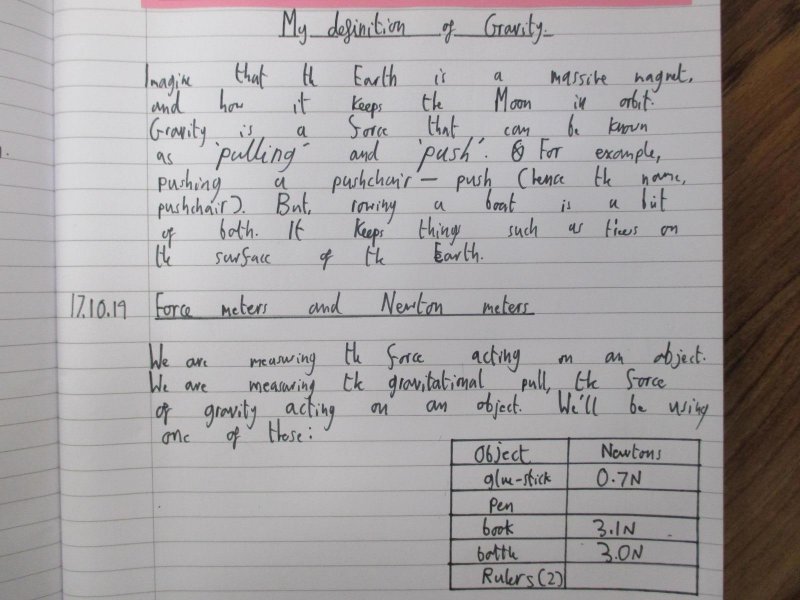 My definition of Gravity.
Imagine that the Earth is a massive magnet,
and how it keeps the Moon in orbit.
Gravity is a force that can be known
as 'pulling' and 'push'. For example,
pushing a pushchair – push (hence the name,
pushchair). But, rowing a boat is a bit
of both. It keeps things such as trees on
the surface of the Earth.
17.10.19 Force meters and Newton meters
We are measuring the force acting on an object.
We are measuring the gravitational pull, the force
of gravity acting on an object. We'll be using
one of these:
Object Newtons
glue-stick 0.7N
Pen
book 3.1N
bottle 3.0N
Rulers (2)